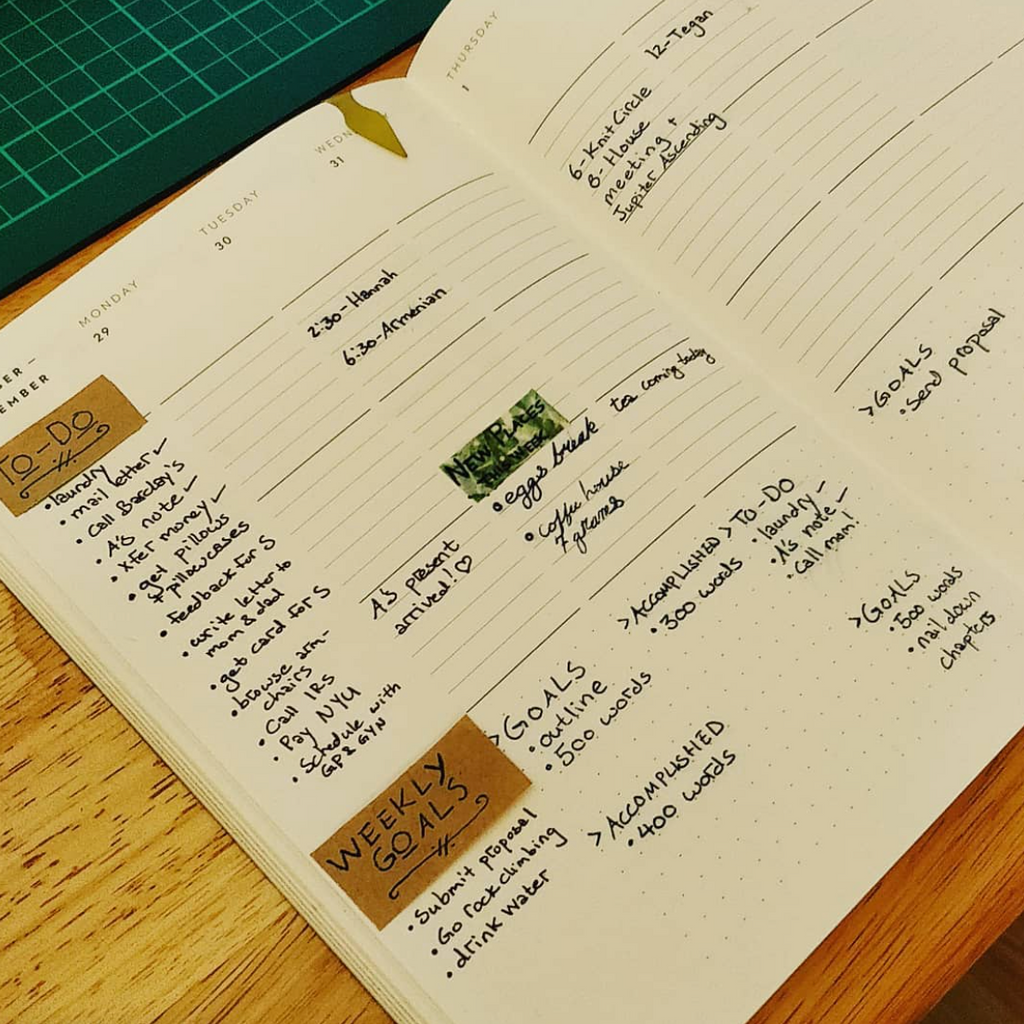 MONDAY
29
TUESDAY
30
31
THURSDAY
1
EMBER
TO-DO
• laundry
• mail letter ✓
• call Barclay's
• A's note ✓
• xfer money ✓
• get pillows
+ pillowcases
• feedback for S
• write letter to
mom & dad
• get card for S
• browse arm-
chairs
• Call IRS
• Pay NYU
• Schedule with
GP & GYN
WEEKLY
GOALS
• Submit proposal
• Go rock climbing
• drink water
2:30-Hannah
6:30-Armenian
NEW PLACES
THIS WEEK
• eggs break
• coffee house
7 grams
A's present
arrived! ♡
> GOALS
• outline
• 500 words
> ACCOMPLISHED
• 400 words
tea coming today
> ACCOMPLISHED
• 300 words
> TO-DO
• laundry ✓
• A's note ✓
• call mom!
> GOALS
• 500 words
• nail down
chapters
12-Tegan
6-Knit Circle
8-House
meeting +
Jupiter Ascending
> GOALS
• send proposal